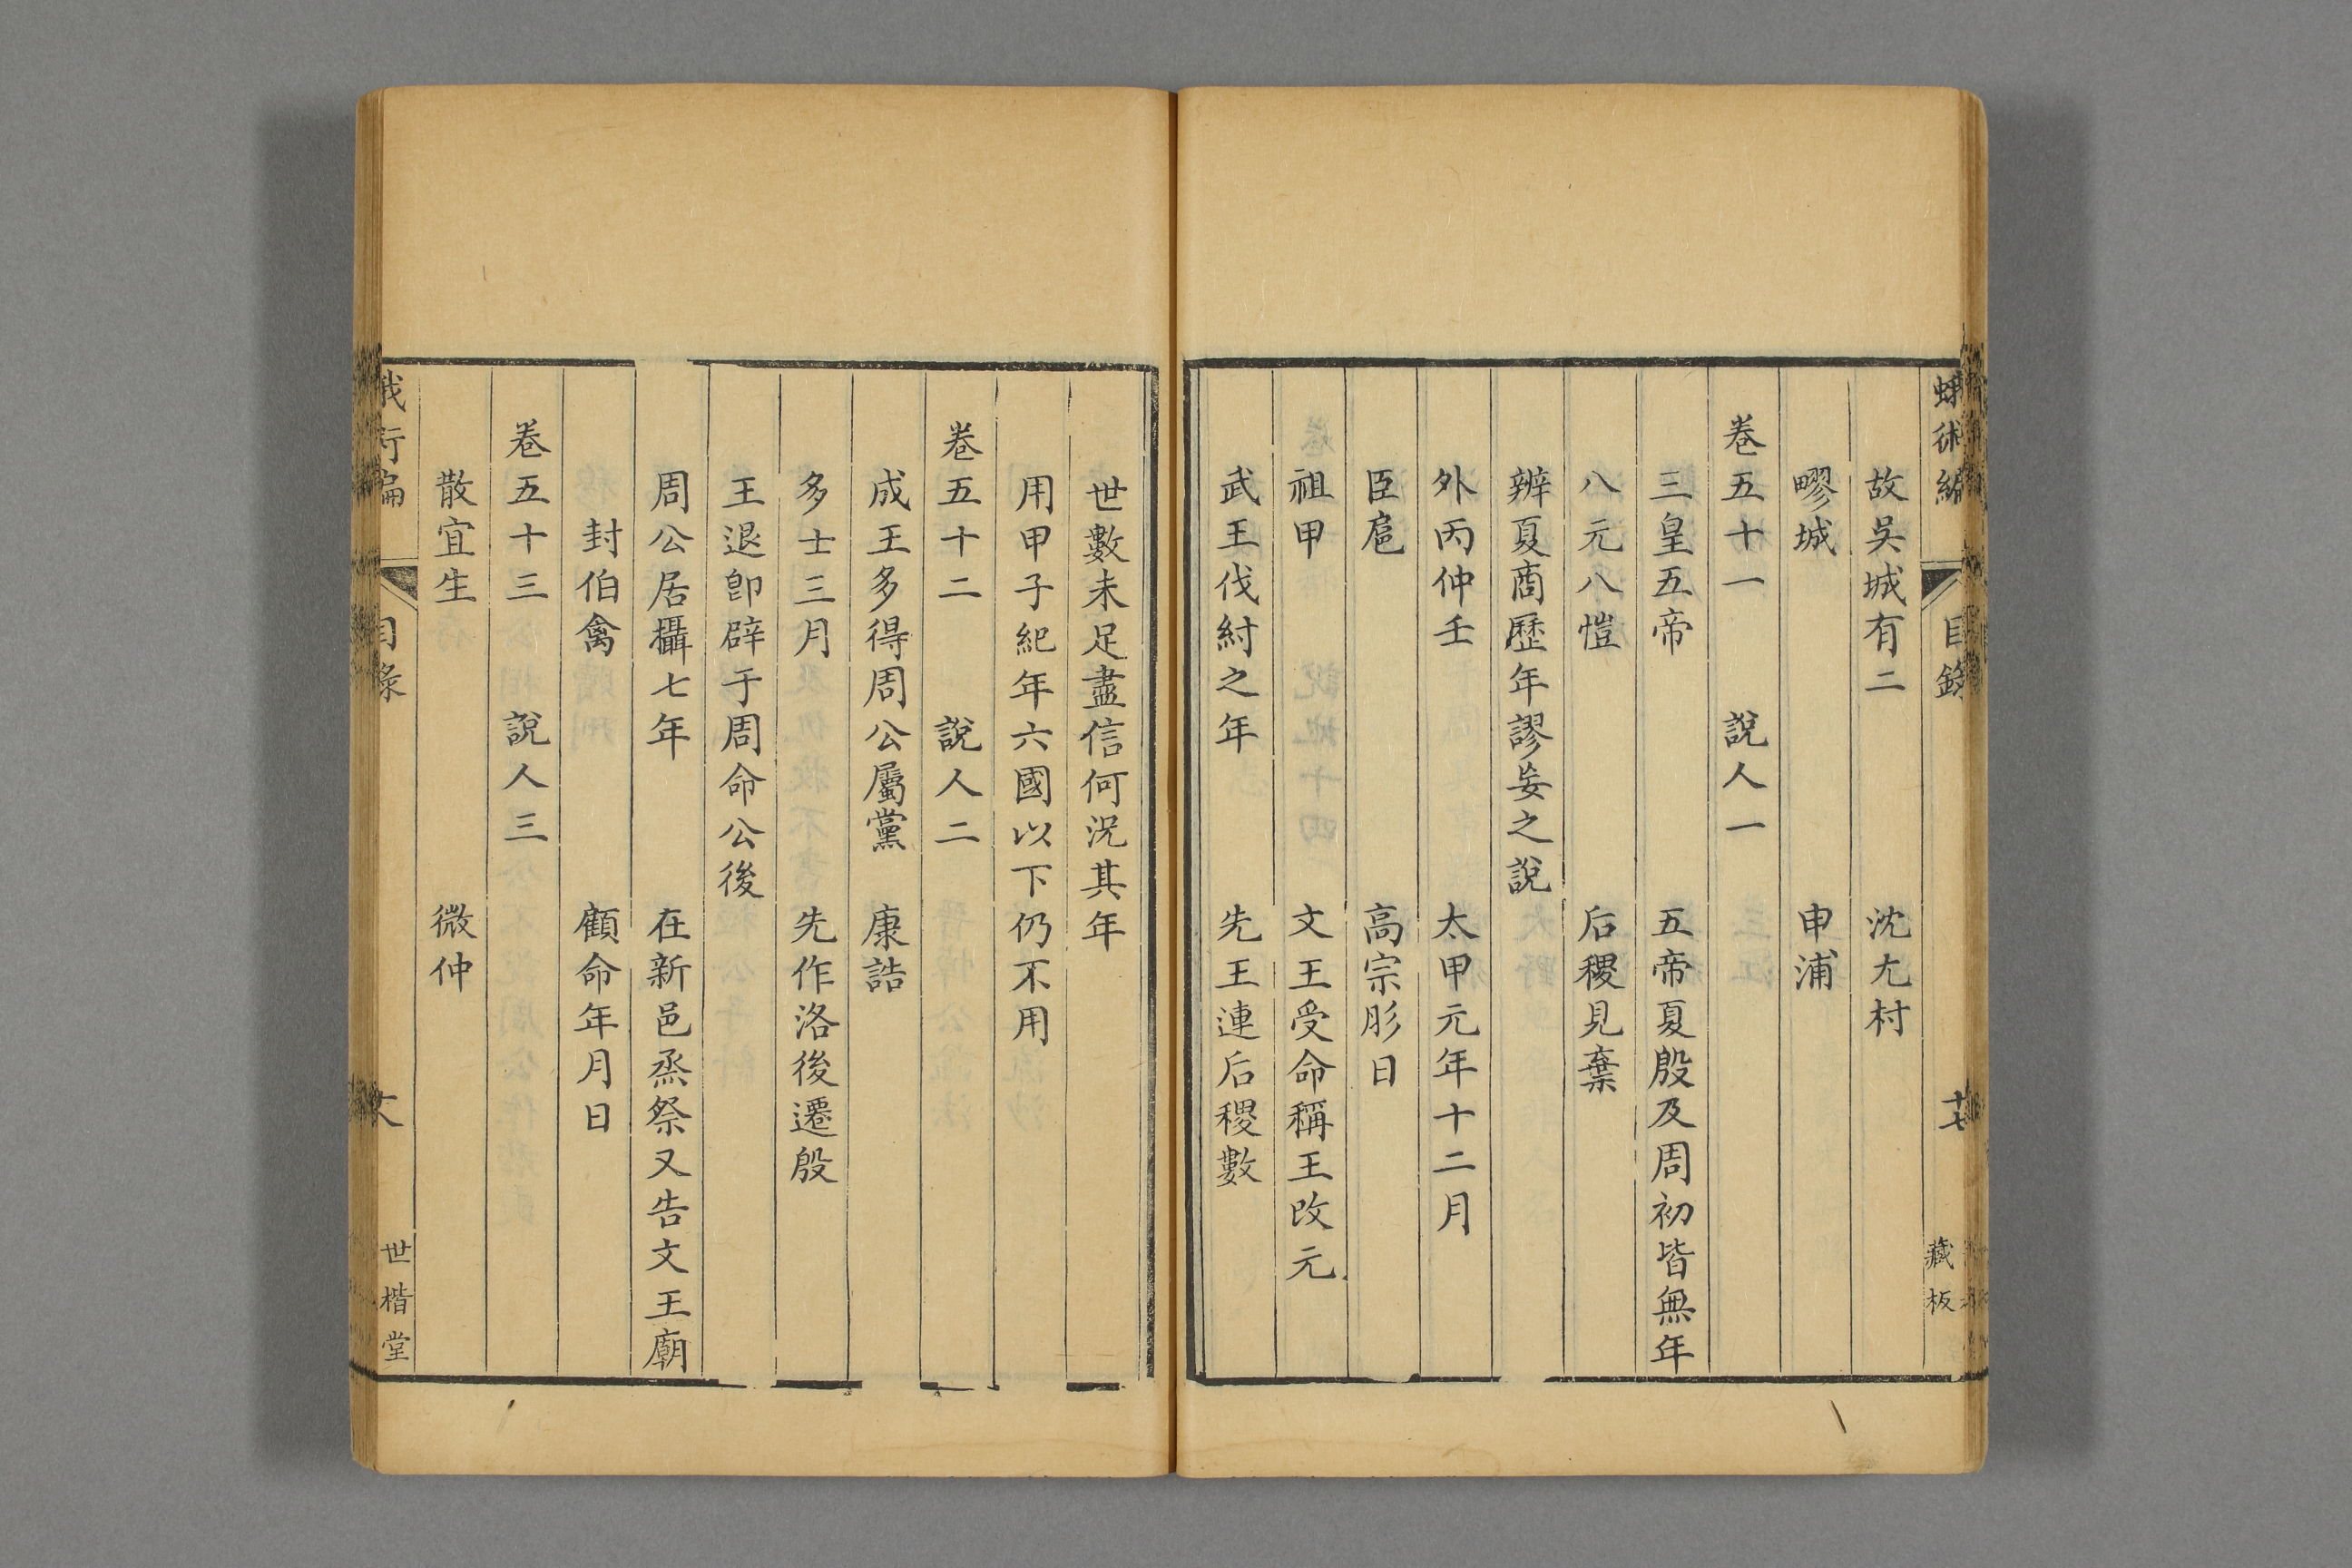 蛾術編 目錄 十七 藏板
故吳城有二 沈尢村
疁城 申浦
卷五十一 說人一
三皇五帝 五帝夏殷及周初皆無年
八元八愷 后稷見棄
辨夏商歷年謬妄之說
外丙仲壬 太甲元年十二月
臣扈 高宗肜日
祖甲 文王受命稱王改元
武王伐紂之年 先王連后稷數
世數未足盡信何況其年
用甲子紀年六國以下仍不用
卷五十二 說人二
成王多得周公屬黨 康誥
多士三月 先作洛後遷殷
王退卽辟于周命公後
周公居攝七年 在新邑烝祭又告文王廟
封伯禽 顧命年月日
卷五十三 說人三
散宜生 微仲
蛾術編 目錄 世楷堂